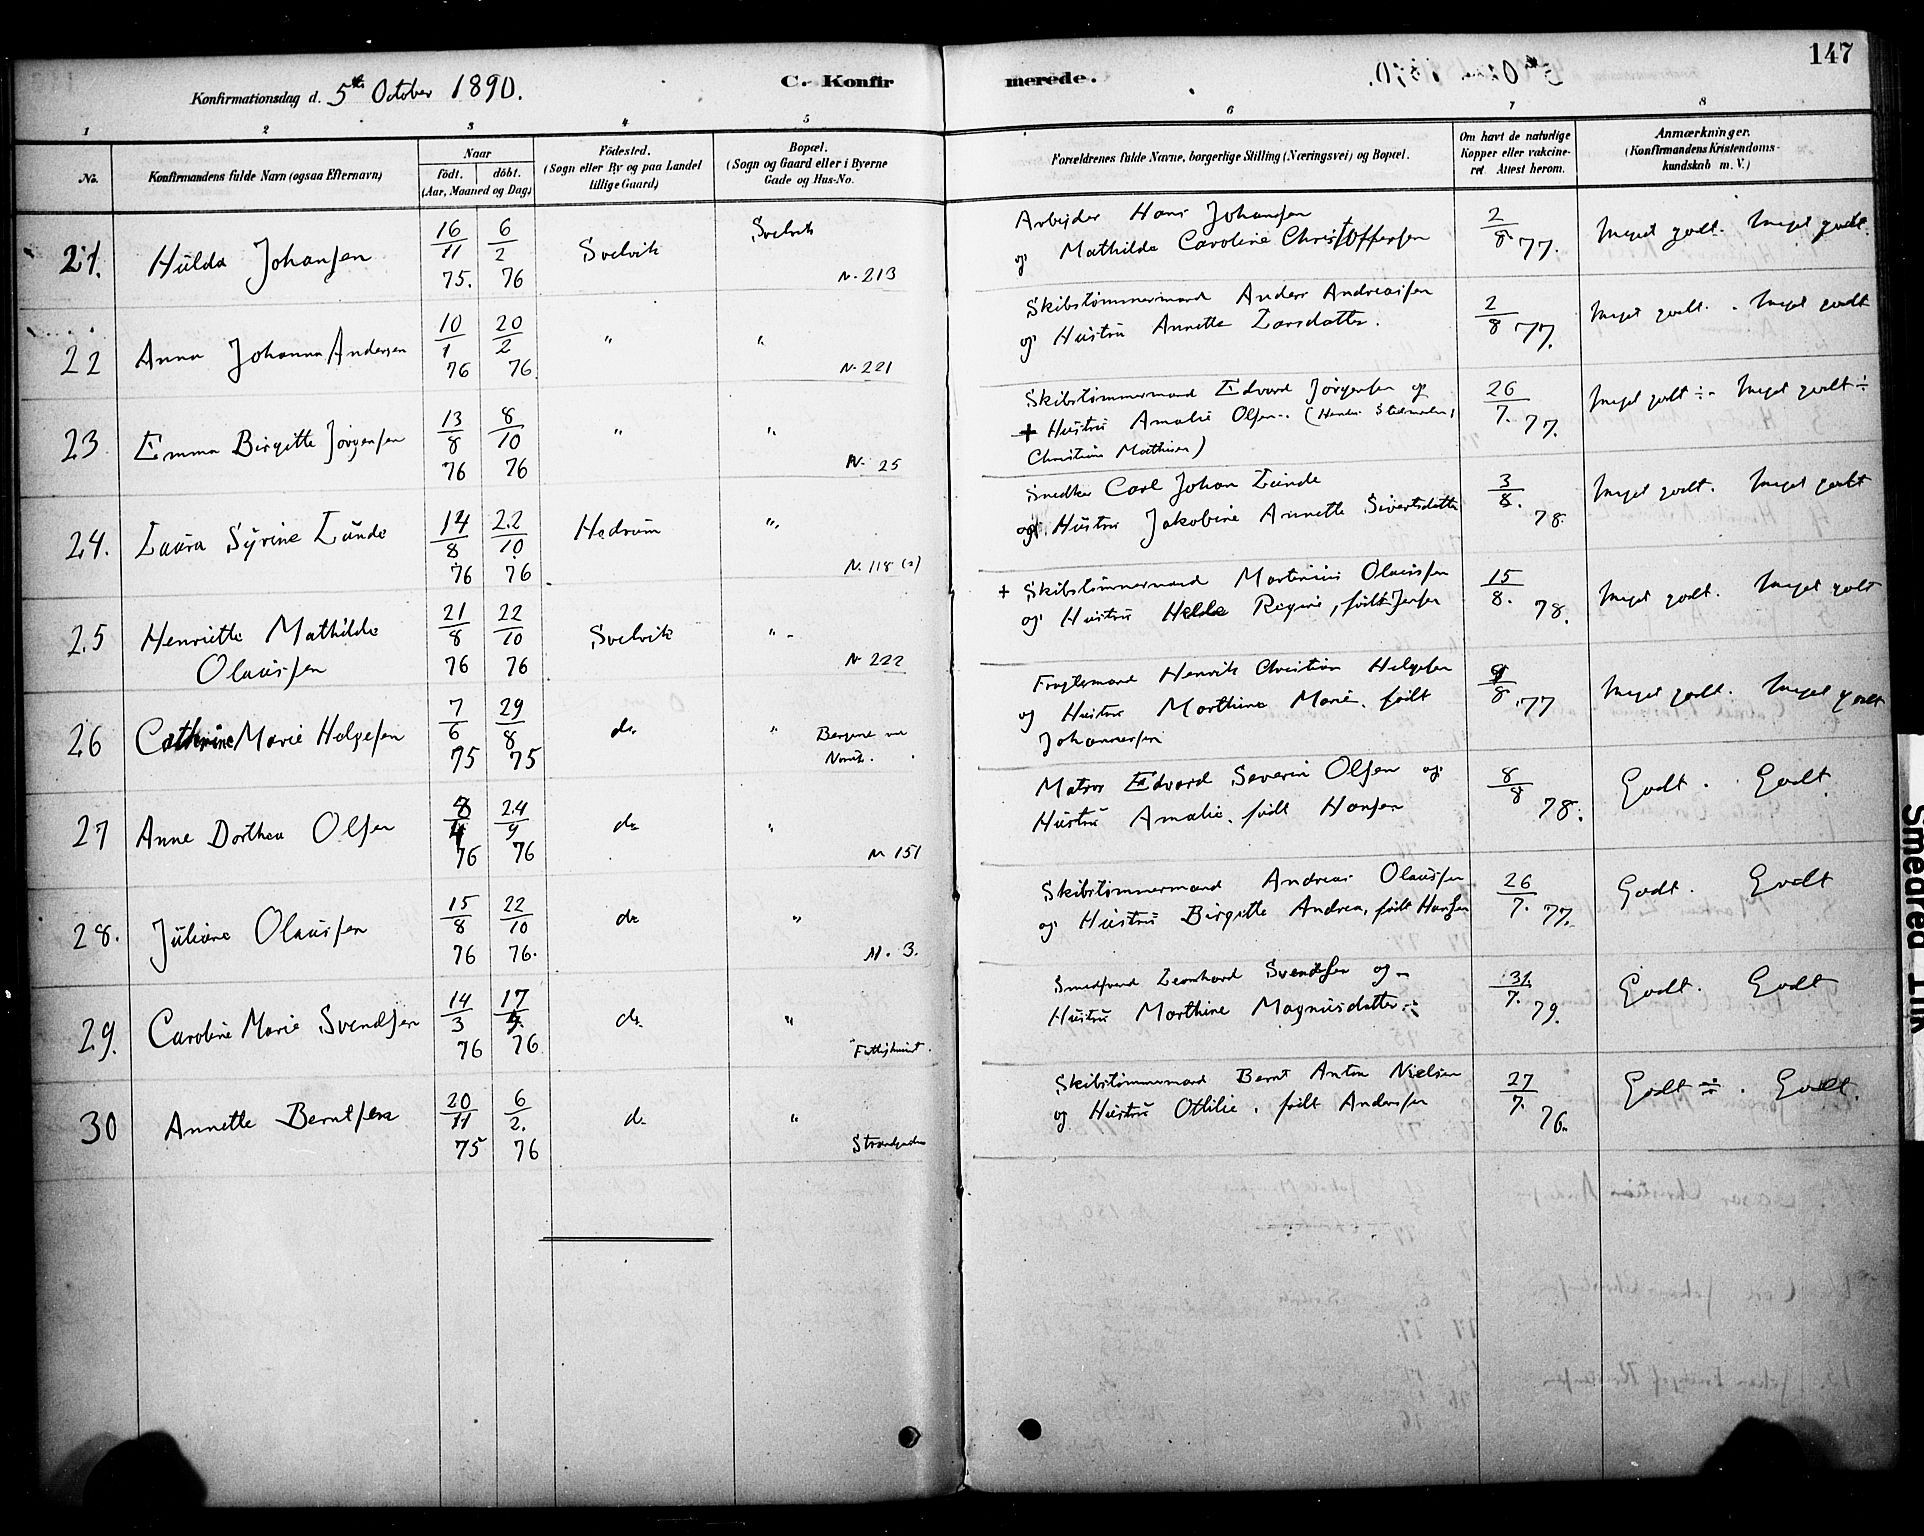 147
Konfirmationsdag d. 5te October 1890.
C. Konfirmerede.
1 2 3 4 5 6 7 8
No.
Konfirmandens fulde Navn (ogsaa Efternavn)
Naar
födt. döbt.
(Aar, Maaned og Dag)
Födested.
(Sogn eller By og paa Landet
tillige Gaard)
Bopæl.
(Sogn og Gaard eller i Byerne
Gade og Hus-No.
Forældrenes fulde Navne, borgerlige Stilling (Næringsvei) og Bopæl.
Om havt de naturlige
Kopper eller vakcine-
ret Attest herom.
Anmærkninger.
(Konfirmandens Kristendoms-
kundskab m. V.)
21. Hulda Johansen 16/11 75. 6/2 76 Svelvik Svelvik N. 213
Arbejder Hans Johansen
og Mathilde Caroline Christoffersen 2/8 77. Meget godt. Meget godt.
22 Anna Johanna Andersen 10/1 76 20/2 76. " " N. 221
Skibstømmermand Anders Andreassen
og Hustru Annette Larsdatter. 2/8 77. Meget godt. Meget godt
23 Emma Birgitte Jörgensen 13/8 76 8/10 76 " " N. 25
Skibstømmermand Edvard Jörgensen og
+ Hustru Amalie Olsen. (Hendes Stedmoder,
Christine Mathisen) 26/7. 77. Meget godt ÷ Meget godt ÷
24. Laura Syrine Lunde 14/8 76 22/10 76 Hedrum " N. 118 (a)
Snedker Carl Johan Lunde
og Hustru Jakobine Annette Sivertsdatter 3/8. 78. Meget godt. Meget godt
25 Henriette Mathilde
Olaussen 21/8 76 22/10 76 Svelvik " N 222
+ Skibstømmermand Martinius Olaussen
og Hustru Helde Regine, födt Jensen 15/8. 78. Meget godt. Meget godt
26 Cathrine Marie Helgesen 7/6 75 29/8 75 do " Bergene
Fragtemand Henrik Christian Helgesen
og Hustru Marthine Marie, födt
Johannessen 9/8 77 Meget godt. Meget godt
27 Anne Dorthea Olsen 8/4 76 24/9 76 do " N 151
Matros Edvard Severin Olsen og
Hustru Amalie, födt Hansen 8/8 78. Godt. Godt.
28. Juliane Olaussen 15/8 76 22/10 76. do " N. 3.
Skibstømmermand Andreas Olaussen
og Hustru Birgitte Andrea, födt Hansen 26/7. 77. Godt. Godt
29. Caroline Marie Svendsen 14/3 76 17/4 76 do "
Smedsvend Leonhard Svendsen og
Hustru Marthine Magnusdatter 31/7. 79. Godt. Godt
30 Annette Berntsen 20/11 75 6/2. 76 do " Strandgaden
Skibstømmermand Bernt Anton Nielsen
og Hustru Othilie, födt Andersen 27/7. 76. Godt ÷. Godt.